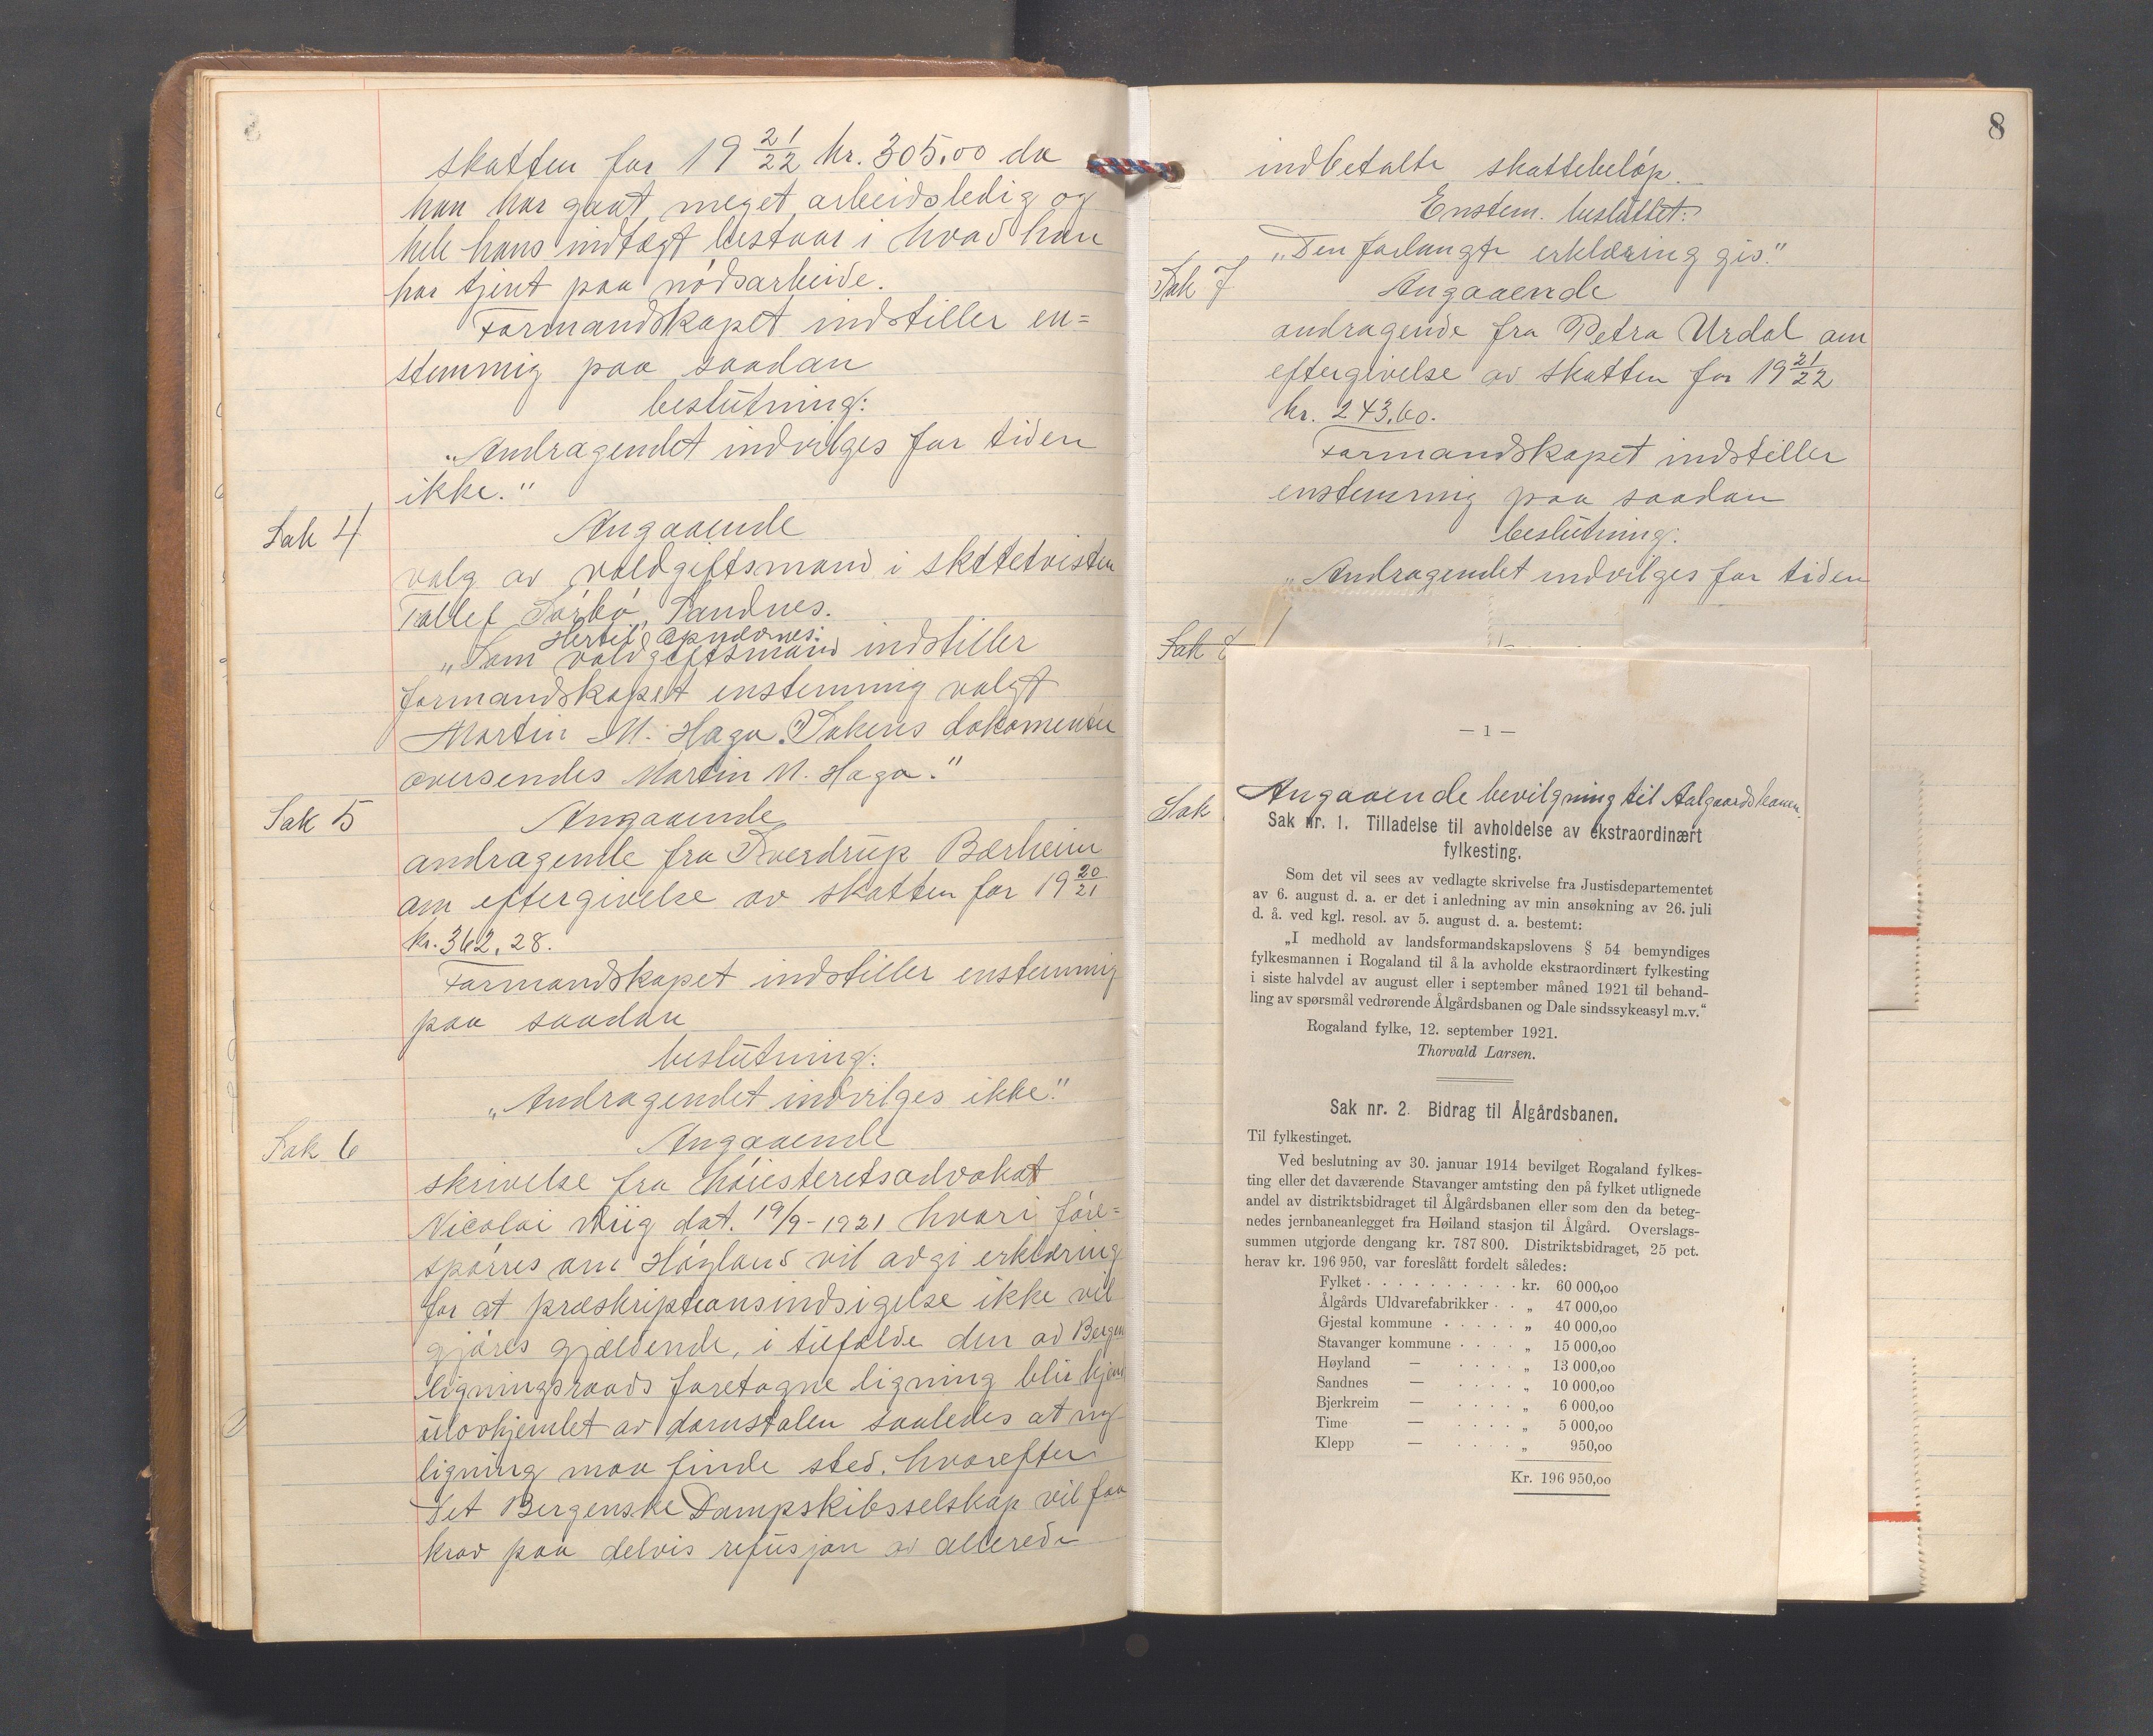 skatten for 19 21/22 kr. 305.00 da
han har gaat meget arbeidsledig og
hele hans indtægt bestaar i hvad han
har tjent paa nødsarbeide.
Formandskapet indstiller en=
stemmig paa saadan
beslutning:
„Andragendet indvilges for tiden
ikke."
Sak 4
Angaaende
valg av voldgiftsmand i skttetvisten
Tollef Sørbø, Sandnes.
Hertil opnævnes:
„Som voldgiftsmand indstiller
formandskapet enstemmig valgt
Martin M. Haga. Sakens dokomenter
oversendes Martin M. Haga."
Sak 5
Angaaende
andragende fra Sverdrup Bærheim
om eftergivelse av skatten for 19 20/21
kr. 362,28.
Formandskapet indstiller enstemmig
paa saadan
beslutning:
„Andragendet indvilges ikke."
Sak 6
Angaaende
skrivelse fra høiesteretsadvokat
Nicolai Wiig dat. 19/9-1921 hvori føre=
spørres om Høyland vil avgi erklæring
for at præskriptionsindsigelse ikke vil
gjøres gjældende, i tilfælde den av Bergen
ligningsraads foretagne ligning blir kjent
ulovhjemlet av domstolen saaledes at ny
ligning maa finde sted, hvorefter
Det Bergenske Dampskibsselskap vil faa
krav paa delvis refusjon av allerede
8
indbetalte skattebeløp.
Enstem. besluttet:
„Den forlangte erklæring gis."
Sak 7
Angaaende
andragende fra Petra Urdal om
eftergivelse av skatten for 19 21/22
kr. 243,60.
Formandskapet indstiller
enstemmig paa saadan
beslutning:
„Andragendet indvilges for tiden
Sak 8
Sak
— 1 —
Angaaende bevilgning til Aalgaardsbanen.
Sak nr. 1. Tilladelse til avholdelse av ekstraordinært
fylkesting.
Som det vil sees av vedlagte skrivelse fra Justisdepartementet
av 6. august d. a. er det i anledning av min ansøkning av 26. juli
d. å. ved kgl. resol. av 5. august d. a. bestemt:
„I medhold av landsformandskapslovens § 54 bemyndiges
fylkesmannen i Rogaland til å la avholde ekstraordinært fylkesting
i siste halvdel av august eller i september måned 1921 til behand-
ling av spørsmål vedrørende Ålgårdsbanen og Dale sindssykeasyl m.v."
Rogaland fylke, 12. september 1921.
Thorvald Larsen.
Sak nr. 2. Bidrag til Ålgårdsbanen.
Til fylkestinget.
Ved beslutning av 30. januar 1914 bevilget Rogaland fylkes-
ting eller det daværende Stavanger amtsting den på fylket utlignede
andel av distriktsbidraget til Ålgårdsbanen eller som den da beteg-
nedes jernbaneanlegget fra Høiland stasjon til Ålgård. Overslags-
summen utgjorde dengang kr. 787 800. Distriktsbidraget, 25 pct.
herav kr. 196 950, var foreslått fordelt således:
Fylket . . . . . . . . . . kr. 60 000,00
Ålgårds Uldvarefabrikker . . „ 47 000,00
Gjestal kommune . . . . . „ 40 000,00
Stavanger kommune . . . . „ 15 000,00
Høyland — . . . . „ 13 000,00
Sandnes — . . . . „ 10 000,00
Bjerkreim — . . . . „ 6 000,00
Time — . . . . „ 5 000,00
Klepp — . . . . „ 950,00
Kr. 196 950,00